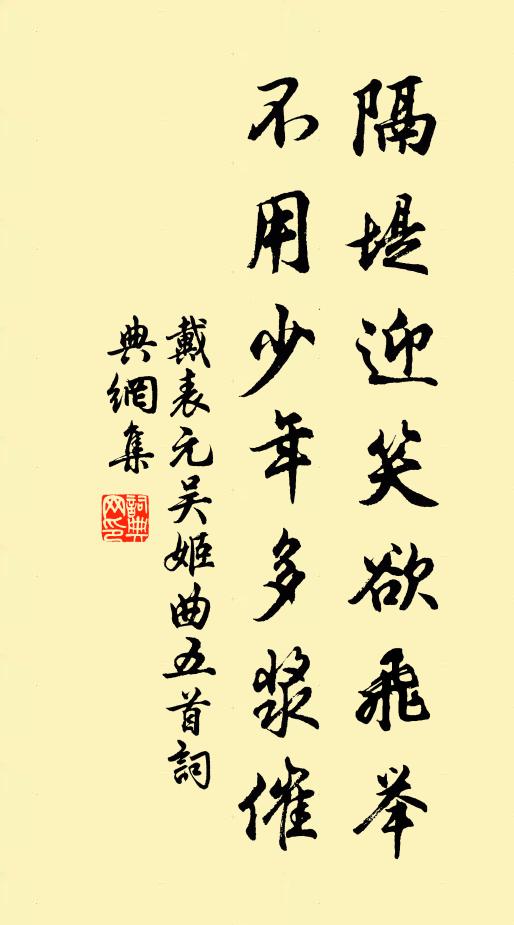 隔堤迎笑欲飛举
不用少年多漿催
戴表元吳姬曲五首詞
典網集
詞典網印